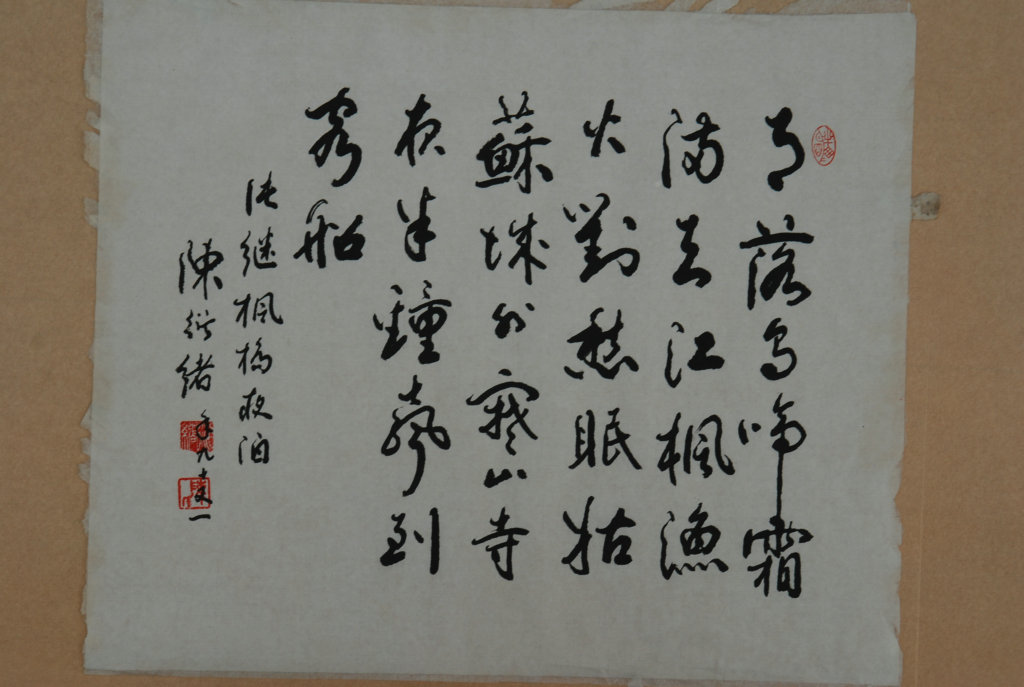 月落烏啼霜
滿天江楓漁
火對愁眠姑
蘇城外寒山寺
夜半鐘聲到
客船
张继楓橋夜泊
陳衍緒年九